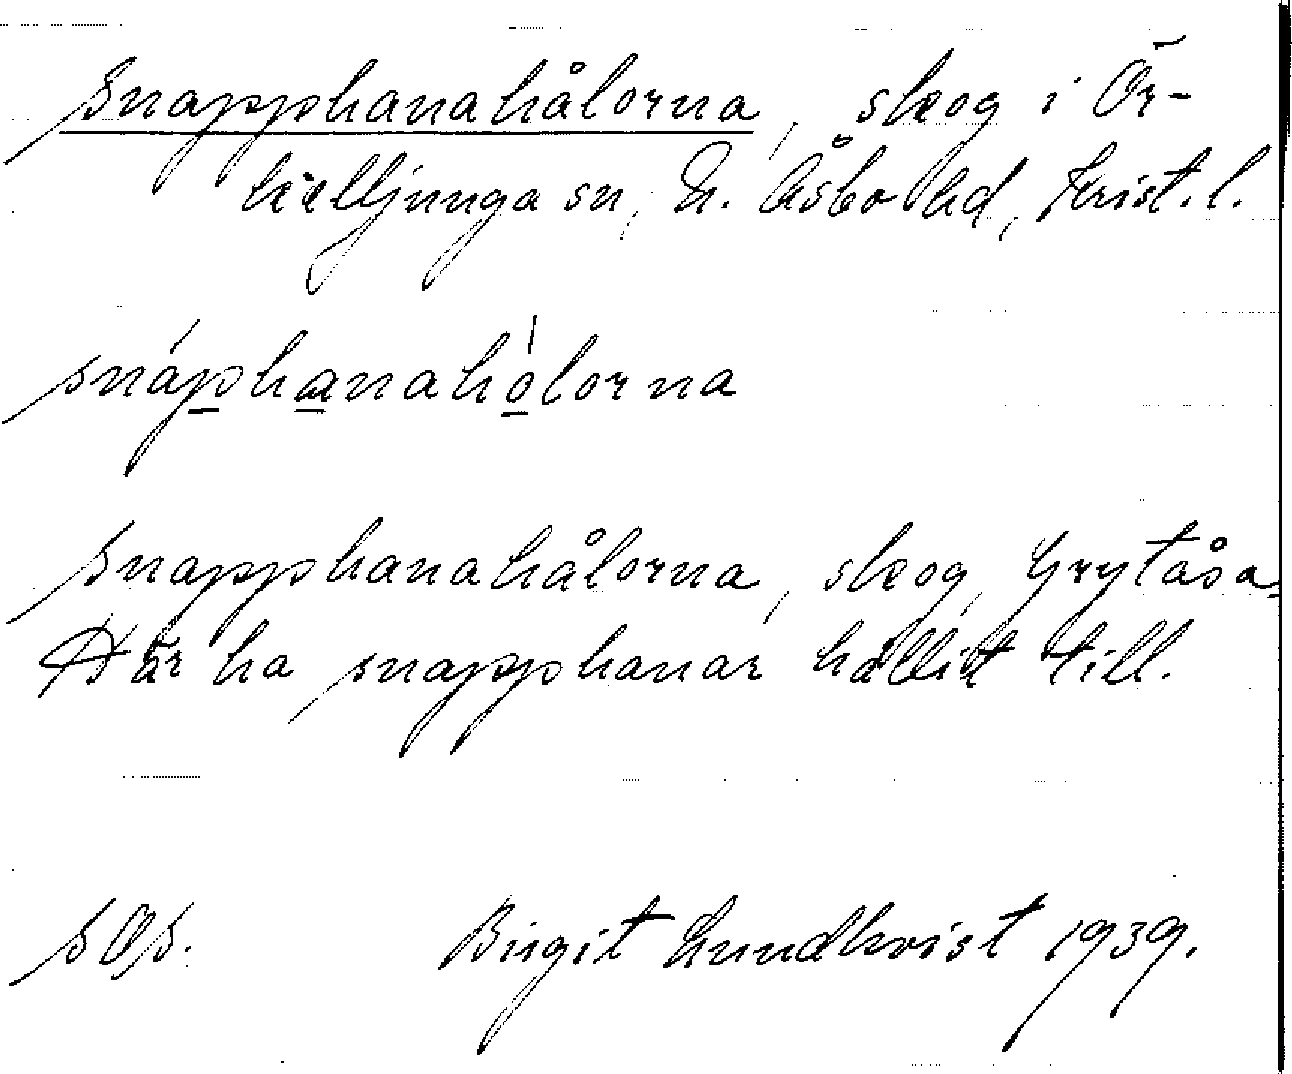 Snapphanahålorna, skog i Ör-
kelljunga sn, N. Åsbo hd, Krist. l.
snáphanahólorna
Snapphanahålorna, skog, Grytåsa.
Här ha snapphanar hållit till.
SOS. Birgit Lundkvist 1939.